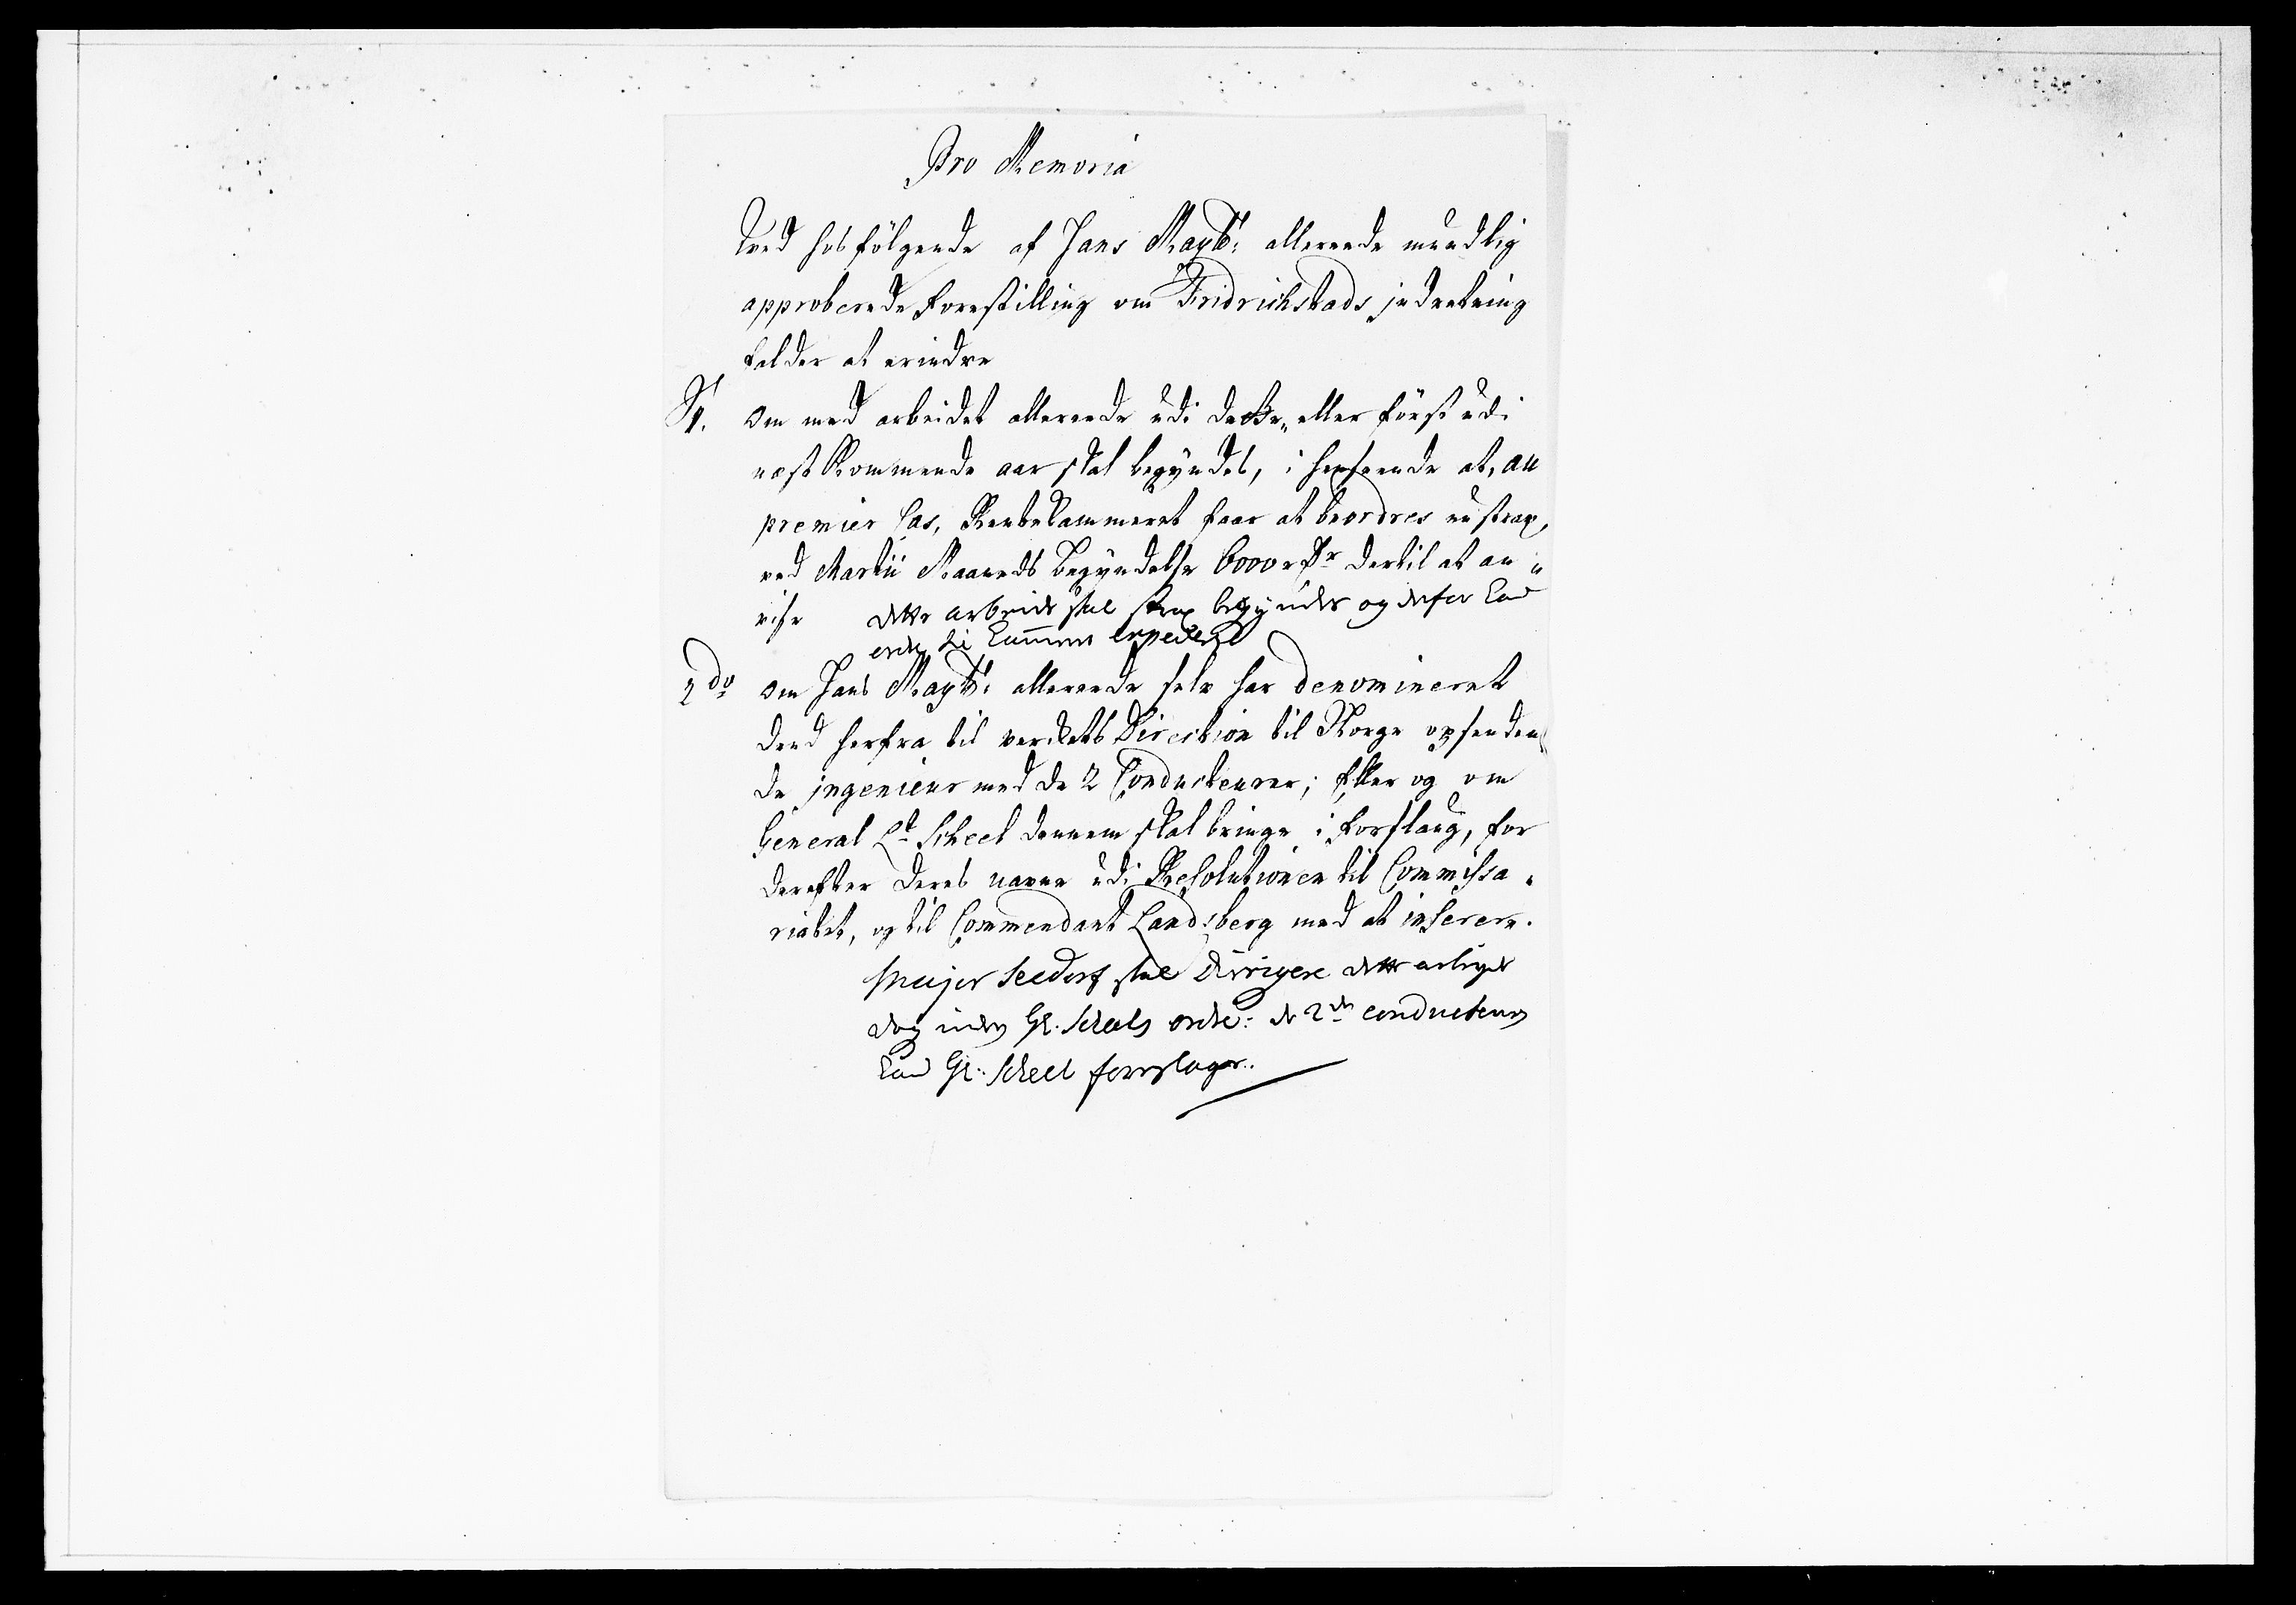 Pro Memoria
Ved hosfölgende af Hans Mayts: allerede mundlig
approberede Forestilling om Fridrichstads jndretning
falder at erindre
1. Om med arbeidet allerede udi dette, eller först udi
næstkommende aar skal begyndes, i henseende at, au
premier Cas, Rentekammeret faar at beordres nu strax,
ved Martii Maaneds Begyndelse 6000 rdr dertil at an-
vise dette arbeide skal strax begyndes og derfor kand
ordre til Cammeret expederes
2do Om Hans Mayts: allerede selv har denomineret
dend herfra til verckets Direction til Norge opsenden-
de jngenieur med de 2 Conducteurer; Eller og om
General Lt Scheel dennem skal bringe i forslaug, for
derefter deres navne udi Resolutionen til Commissa-
riatet, og til Commendant Landsberg med at inserere.
Major Seedorf skal dirrigere dette arbeyde
dog under Gl. Scheels ordre: de 2de conducteurs
kand Gl: Scheel forreslage.